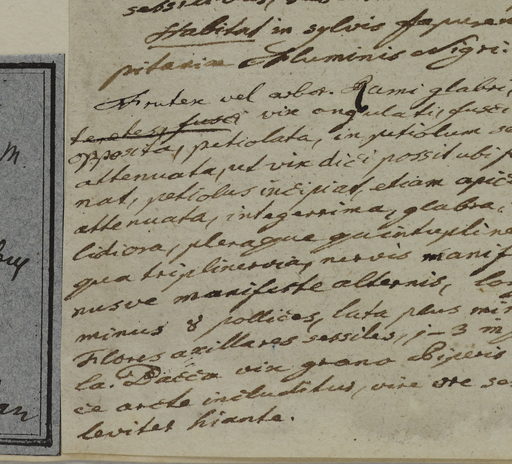 Habitat in sylvis Japurens
pitariae Fluminis Nigri
Frutex vel arbor. Rami glabri,
teretes, fusci vix angulati, fusci
opposita, petiolata, in petiolum se
attenuata, ut vix dici possit ubi
nat, petiolus incipiat, etiam apice
attenuata, integerrima, glabra,
lidiora, pleraque quintupline
qua triplinervia, nervis manif
nusve manifeste alternis, lon
minus 8 pollices, lata plus min
Flores axillares sessiles, 1-3
la. Bacca vix grano Piperis
ce arcte includitur, vire ore se
leviter hiante.
m.